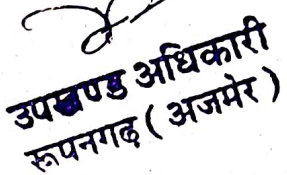 उपखण्ड अधिकारी
रूपनगढ ( अजमेर )